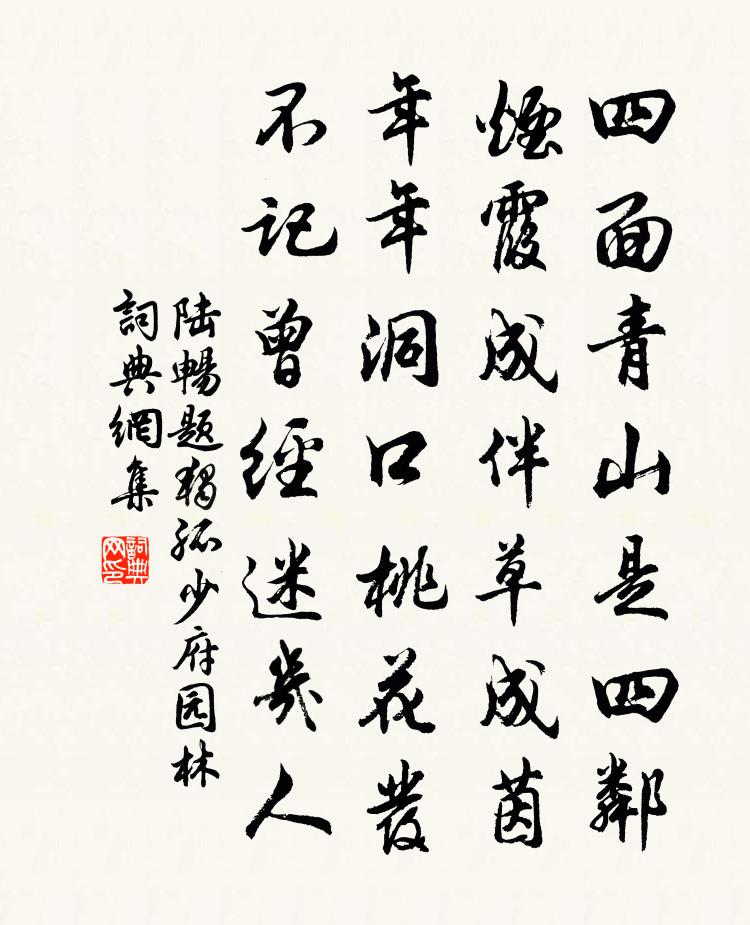 四面青山是四鄰
煙霞成伴草成茵
年年洞口桃花發
不記曾經迷幾人
陆暢题獨孤少府园林
詞典網集
詞典網印